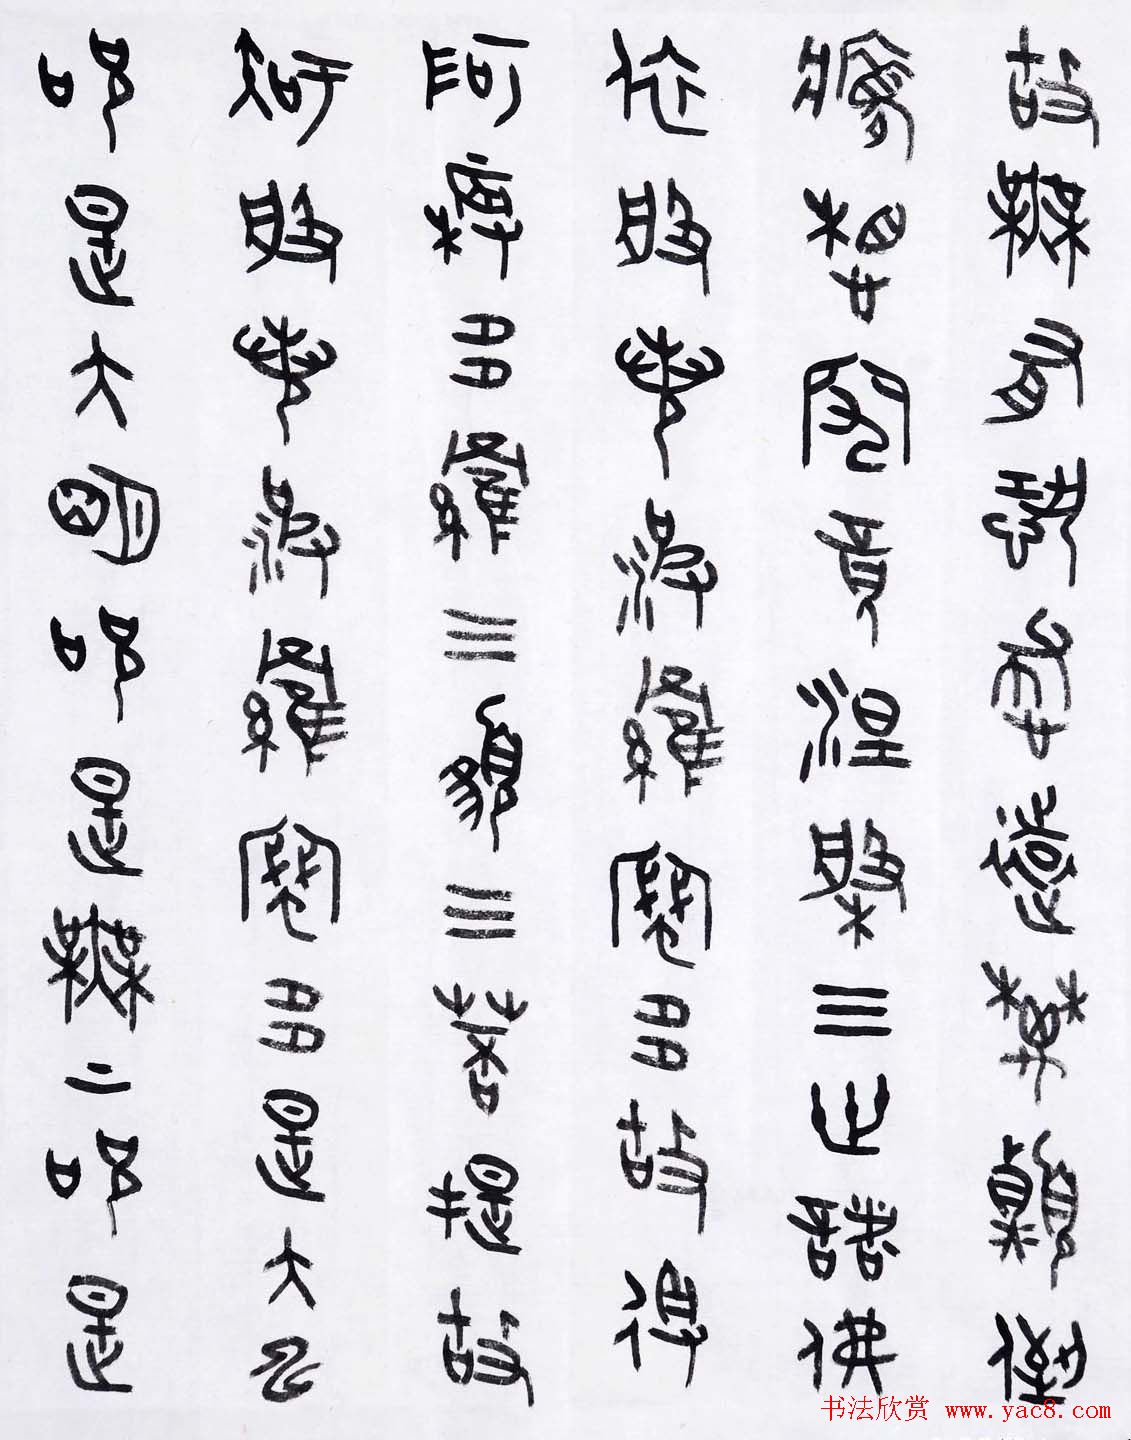 故無有恐怖遠離顛倒
夢想究竟涅槃三世諸佛
依般若波羅蜜多故得
阿耨多羅三藐三菩提故
知般若波羅蜜多是大神
咒是大明咒是無上咒是
书法欣赏 www.yac8.com